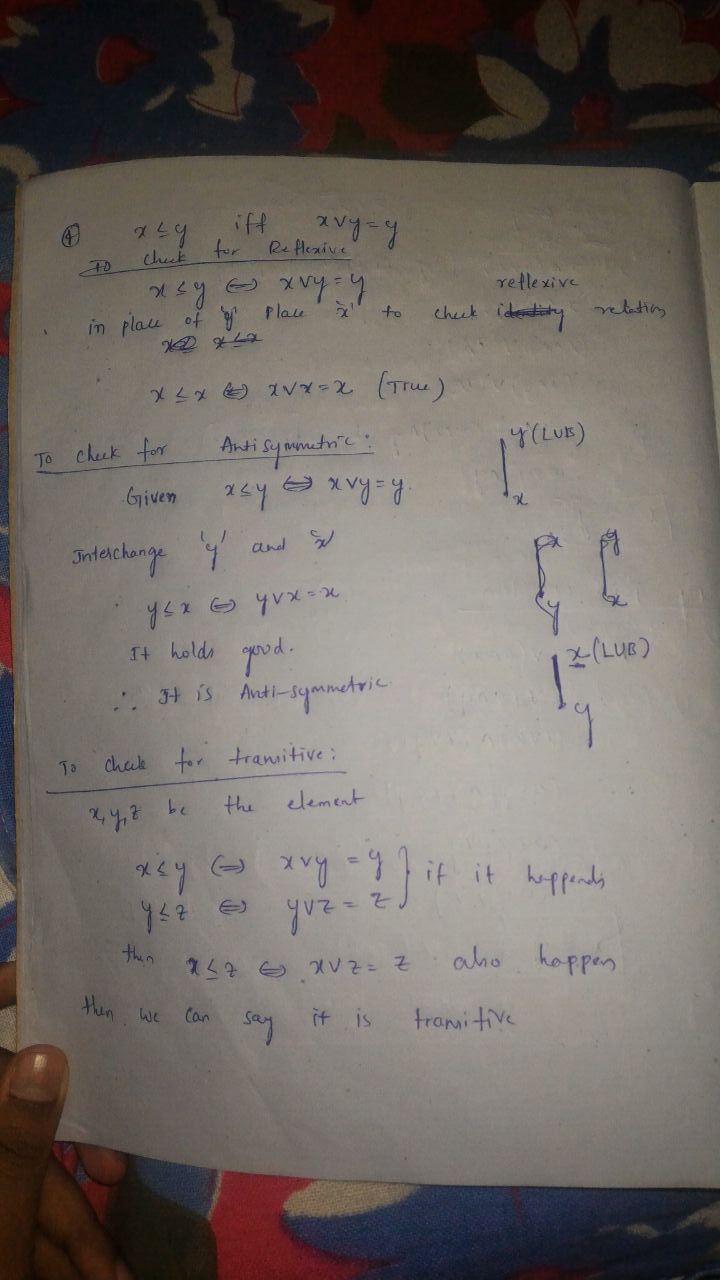 ④ x ≤ y iff x∨y=y
To check for Reflexive
x ≤ y ⇔ x∨y=y
reflexive
in place of 'y' place 'x' to check identity relation
x ≤ x
x ≤ x ⇔ x∨x=x (True)
To check for Antisymmetric:
y (LUB)
x
Given x≤y ⇔ x∨y=y.
Interchange 'y' and 'x'
x y
y x
y≤x ⇔ y∨x=x
It holds good.
x (LUB)
y
∴ It is Anti-symmetric
To check for transitive:
x,y,z be the element
x≤y ⇔ x∨y = y } if it happends
y≤z ⇔ y∨z = z
then x≤z ⇔ x∨z = z also happen
then we can say it is transitive